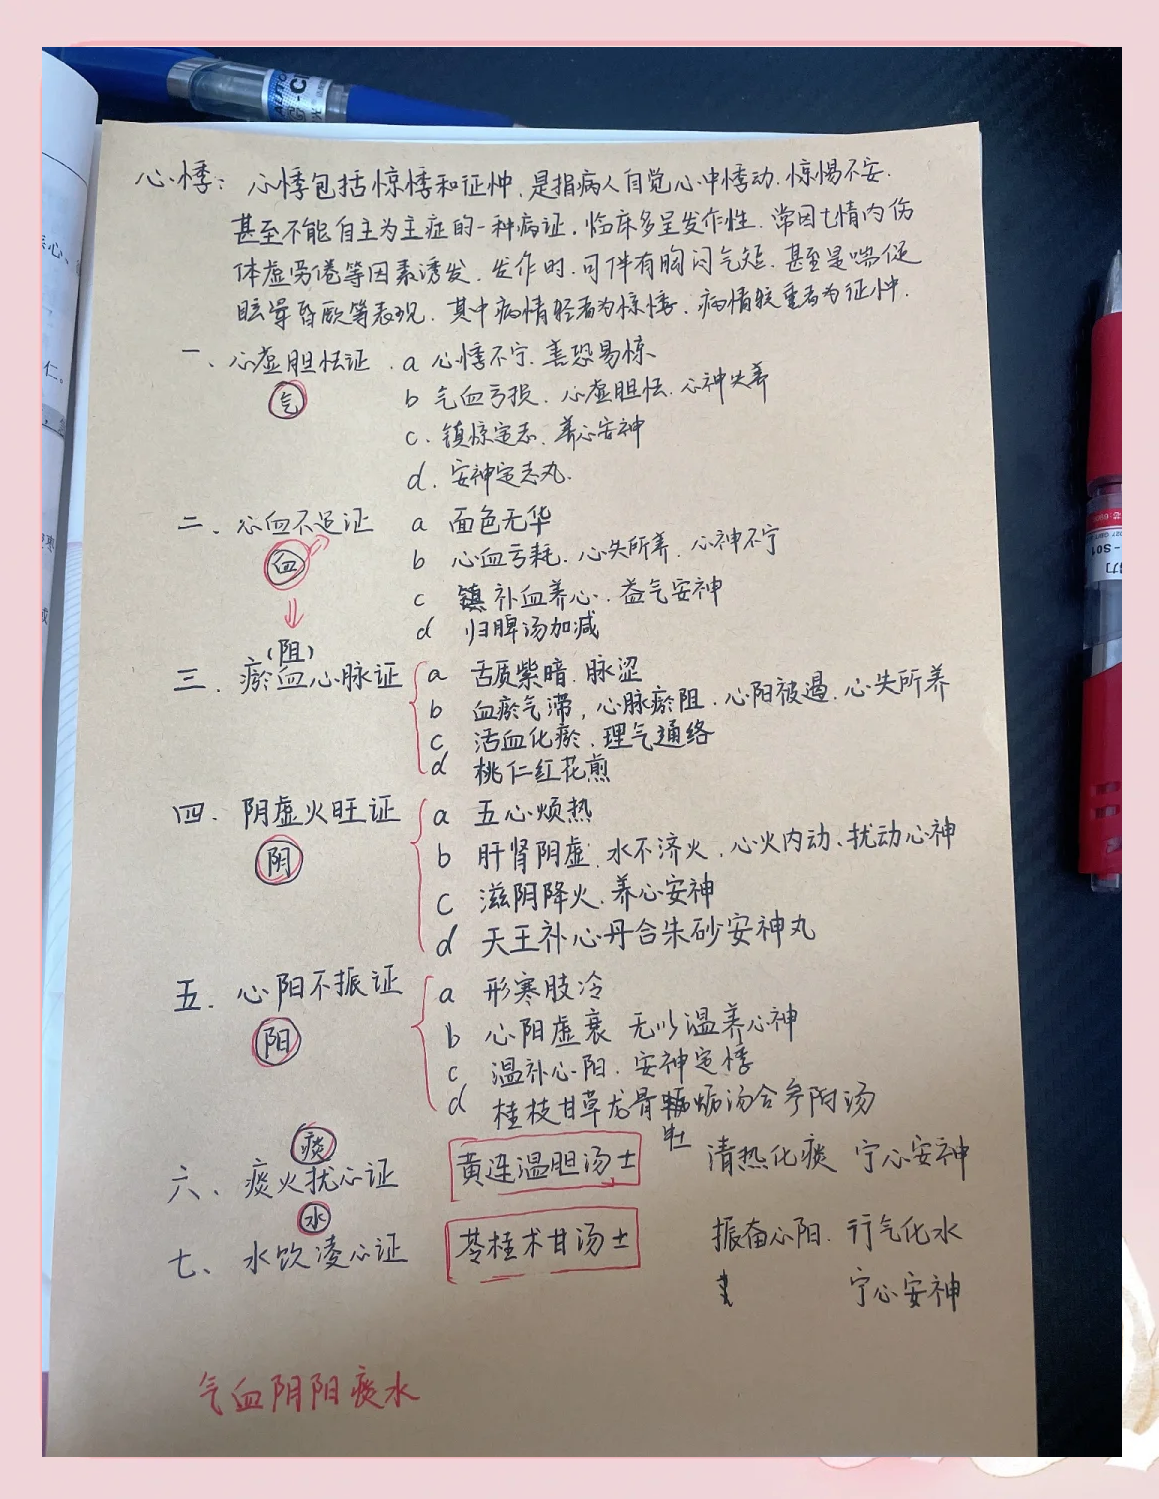 心悸：心悸包括惊悸和征忡，是指病人自觉心中悸动．惊惕不安．
甚至不能自主为主症的一种病证．临床多呈发作性．常因七情内伤
体虚劳倦等因素诱发．发作时．可伴有胸闷气短．甚至是喘促
眩晕昏厥等表现．其中病情轻者为惊悸．病情较重者为征忡．
一、心虚胆怯证．a 心悸不宁．善恐易惊
气
b 气血亏损．心虚胆怯．心神失养
c．镇惊定志．养心安神
d．安神定志丸．
二、心血不足证 a 面色无华
血
b 心血亏耗．心失所养．心神不宁
c 补血养心．益气安神
d 归脾汤加减
(阻)
三．瘀血心脉证 a 舌质紫暗．脉涩
b 血瘀气滞，心脉瘀阻．心阳被遏．心失所养
c 活血化瘀．理气通络
d 桃仁红花煎
四．阴虚火旺证 a 五心烦热
阴
b 肝肾阴虚．水不济火．心火内动、扰动心神
c 滋阴降火．养心安神
d 天王补心丹合朱砂安神丸
五．心阳不振证 a 形寒肢冷
阳
b 心阳虚衰 无以温养心神
c 温补心阳．安神定悸
d 桂枝甘草龙骨牡蛎汤合参附汤
痰
六、痰火扰心证 黄连温胆汤士 清热化痰 宁心安神
水
七、水饮凌心证 苓桂术甘汤士 振奋心阳．行气化水
宁心安神
气血阴阳痰水